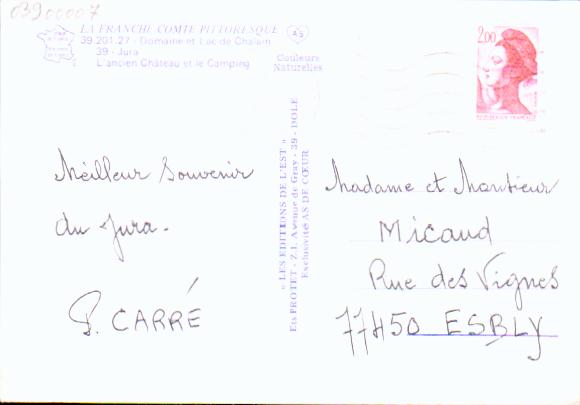 03900007
LA FRANCHE COMTE PITTORESQUE
39.201.27 - Domaine et Lac de Chalain
39 - Jura
L'ancien Château et le Camping
AS
Couleurs
Naturelles
2,00
REPUBLIQUE FRANÇAISE
« LES EDITIONS DE L'EST »
Ets PROTET - Z.I. Avenue de Gray - 39 - DOLE
Exclusivité AS DE CŒUR
Meilleur Souvenir
du Jura -
P. CARRÉ
Madame et Monsieur
Micaud
Rue des Vignes
77450 ESBLY